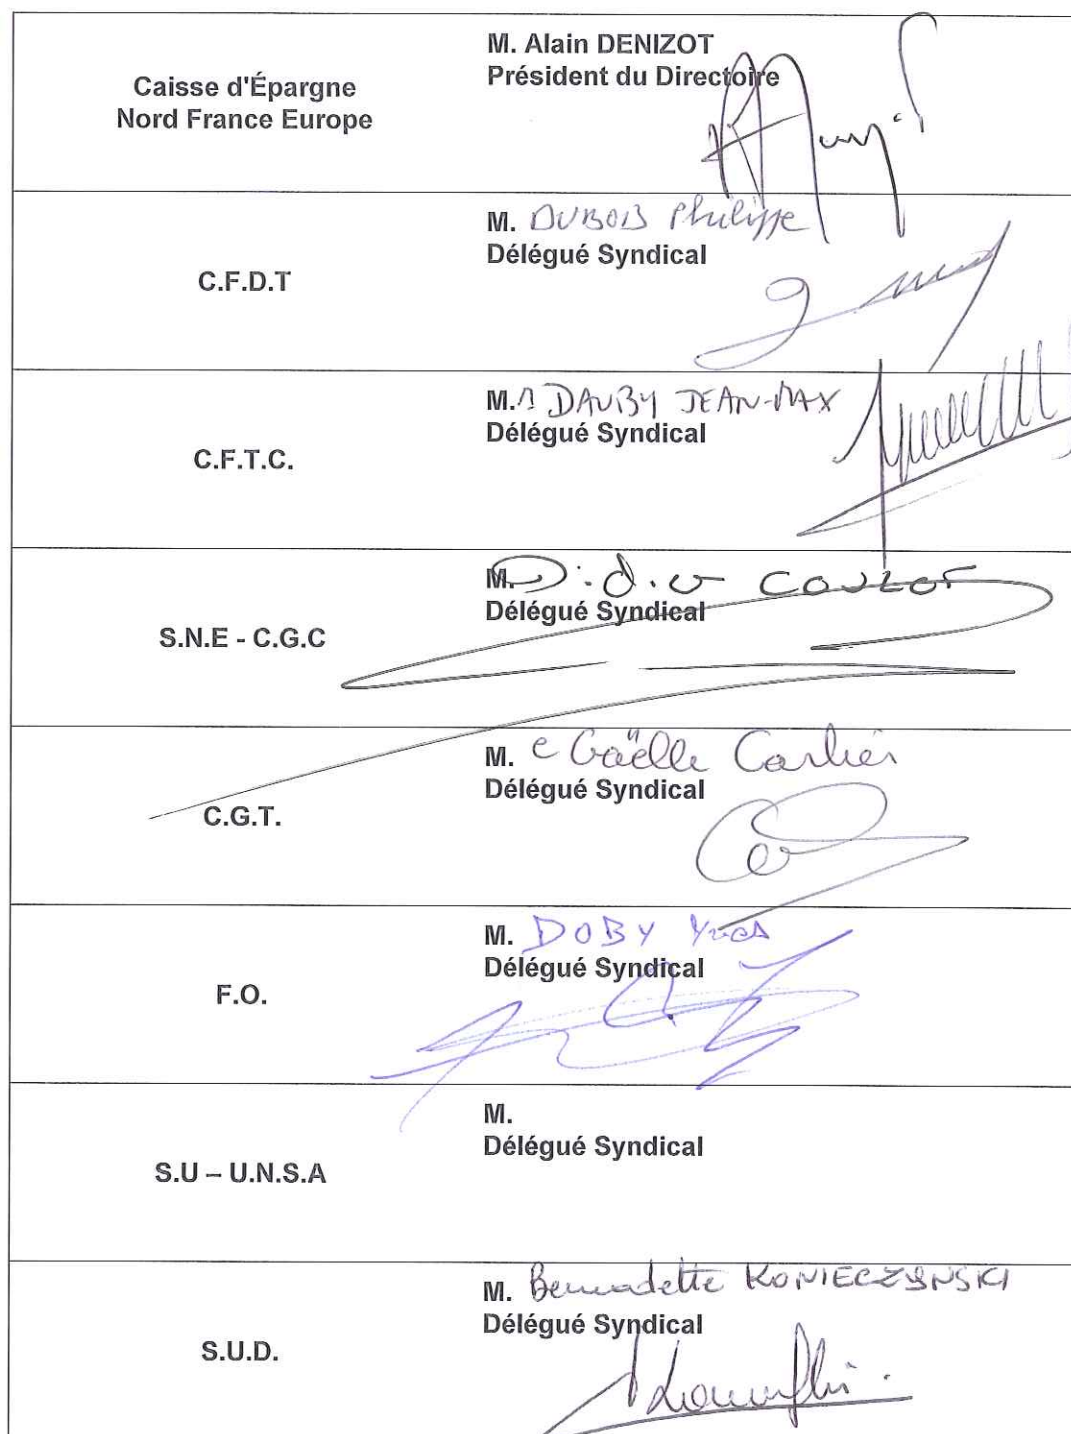 Caisse d'Épargne
Nord France Europe
M. Alain DENIZOT
Président du Directoire
C.F.D.T
M. DUBOIS Philippe
Délégué Syndical
C.F.T.C.
M. DAUBY JEAN-MAX
Délégué Syndical
S.N.E - C.G.C
M. Didier COULOT
Délégué Syndical
C.G.T.
M. e Gaëlle Carlier
Délégué Syndical
F.O.
M. DOBY Yves
Délégué Syndical
S.U – U.N.S.A
M.
Délégué Syndical
S.U.D.
M. Bernadette KONIECZYNSKI
Délégué Syndical